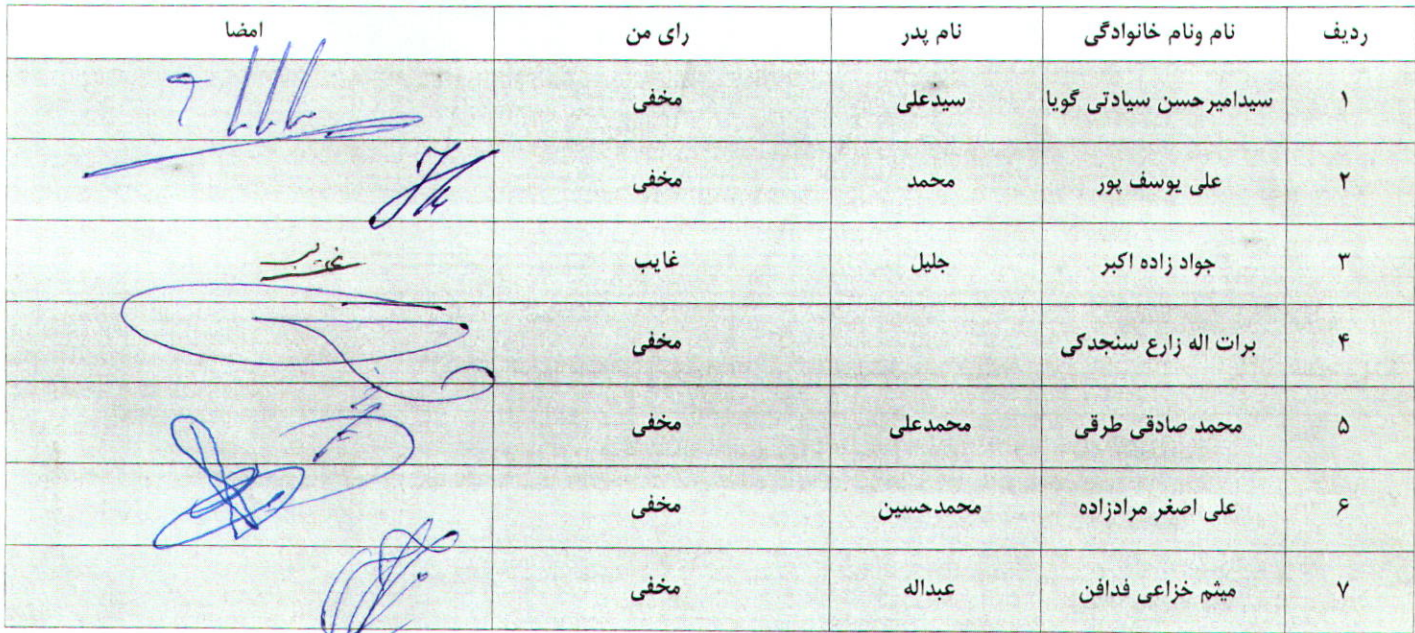 ردیف نام ونام خانوادگی نام پدر رای من امضا
۱ سیدامیرحسن سیادتی گویا سیدعلی مخفی
۲ علی یوسف پور محمد مخفی
۳ جواد زاده اکبر جلیل غایب غایب
۴ برات اله زارع سنجدکی مخفی
۵ محمد صادقی طرقی محمدعلی مخفی
۶ علی اصغر مرادزاده محمدحسین مخفی
۷ میثم خزاعی فدافن عبداله مخفی